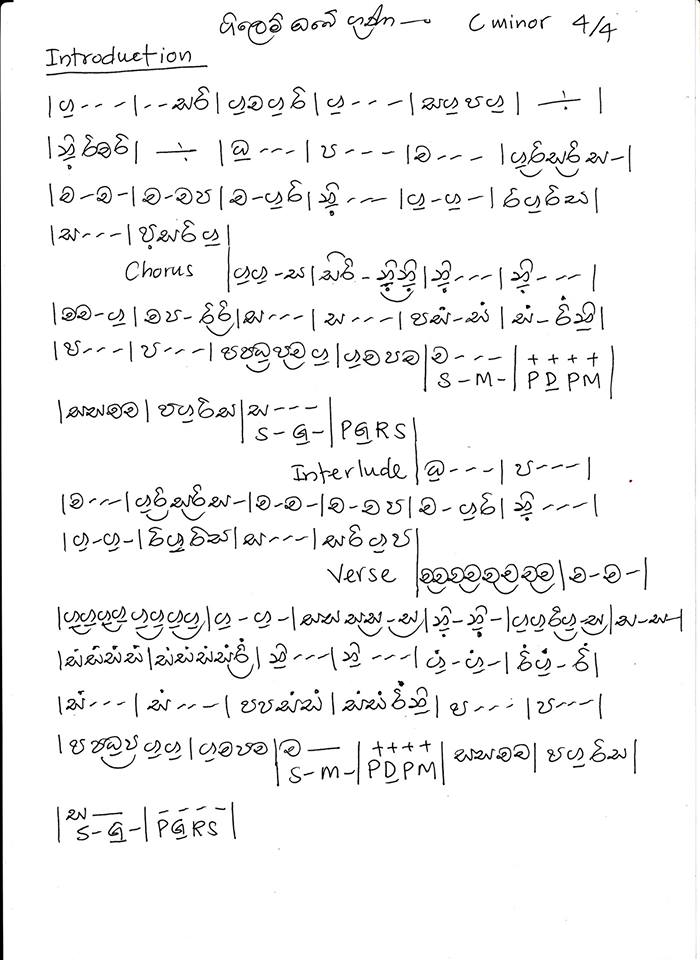 ගිලෙම් ඔබේ — C minor 4/4
Introduction
|ග̱---|--සරි|ග̱මග̱රි|ග̱---|සග̱පග̱| ÷ |
|නි̱̣රිමරි| ÷ |ධ̱---|ප---|ම---|ග̱රිසරිස-|
|ම-ම-|ම-මප|ම-ග̱රි|නි̱̣---|ග̱-ග̱-|රිග̱රිස|
|ස---|ප̣සරිග̱|
Chorus |ග̱ග̱-ස|සරි-නි̱̣නි̱̣|නි̱̣---|නි̱̣---|
|මම-ග̱|මප-රිරි|ස---|ස---|පස̇-ස̇|ස̇-රි̇නි̱|
|ප---|ප---|පපධ̱පමග̱|ග̱මපම|ම---|++++|
S-M-|PḎPM|
|සසමම|පග̱රිස|ස---|
S-G̱-|PG̱RS|
Interlude |ධ̱---|ප---|
|ම---|ග̱රිසරිස-|ම-ම-|ම-මප|ම-ග̱රි|නි̱̣----|
|ග̱-ග̱-|රිග̱රිස|ස---|සරිග̱ප|
Verse |මමමමමමමම|ම-ම-|
|ග̱ග̱ග̱ග̱ග̱ග̱ග̱ග̱|ග̱-ග̱-|සසසස-ස|නි̱̣-නි̱̣-|ග̱ග̱රිග̱-ස|ස-ස-|
|ස̇ස̇ස̇ස̇|ස̇ස̇ස̇ස̇රි̇|නි̱---|නි̱---|ග̱̇-ග̱̇-|රි̇ග̱̇-රි̇|
|ස̇---|ස̇---|පපස̇ස̇|ස̇ස̇රි̇නි̱|ප---|ප---|
|පපධ̱පග̱ග̱|ග̱මපම|ම—|++++|සසමම|පග̱රිස|
S-M-|PḎPM|
|ස—|-----|
S-G̱-|PG̱RS|